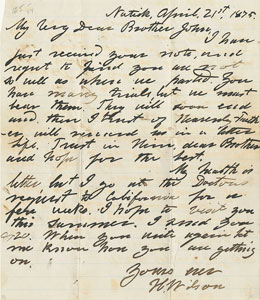 Natick, April, 21st, 1875.
My Very Dear Brother John,
I have
just received your note, and
regret to find you are not
so well as when we parted. You
have many trials, but we must
bear them. They will soon end
and then I trust our Heavenly Father
will receive us in a better
life. Trust in Him, dear Brother
and hope for the best.
My health is
better, but I go at the Doctors
request to California for a
few weeks. I hope to visit you
this summer. I send you
$20. When you write
me know how you are getting
on.
Yours ever
H Wilson